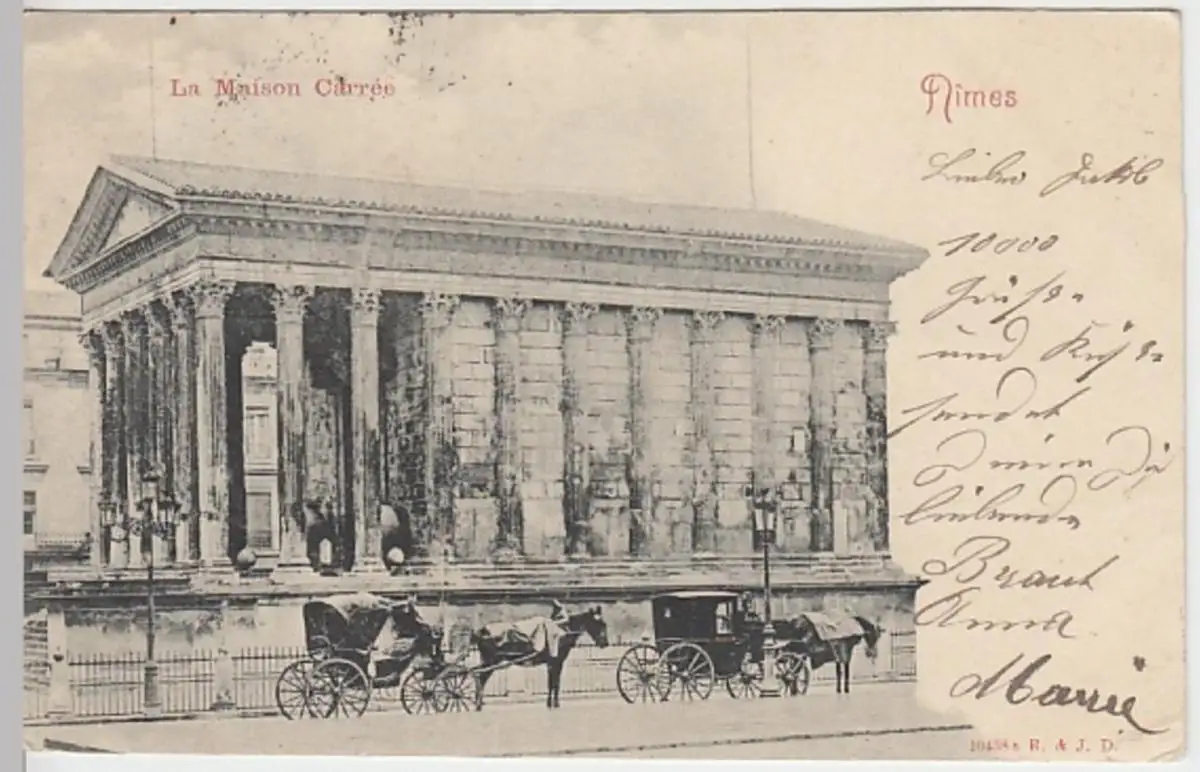 La Maison Carrée
Nîmes
Lieber Jakob
10000
Grüße
und Küsse
sendet
Deine Dich
liebende
Braut
Anna
Marie
10438 R. & J. D.